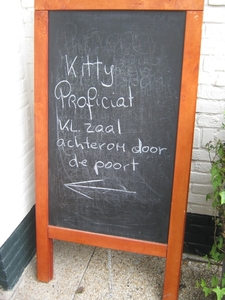 Kitty
Proficiat
KL. zaal
achterom door
de poort